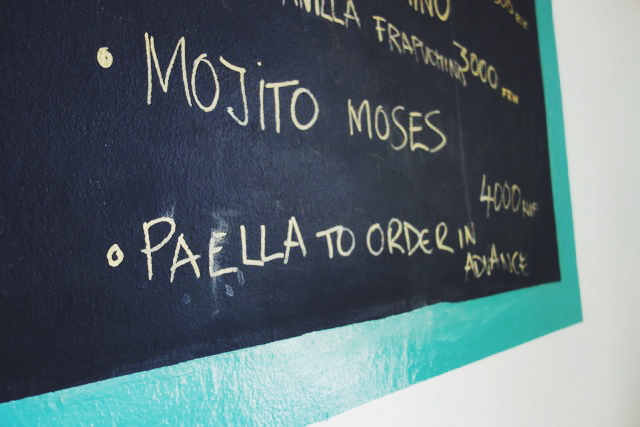 VANILLA FRAPUCHINO 3000 RFW
• MOJITO MOSES
4000 RWF
• PAELLA TO ORDER IN
ADVANCE